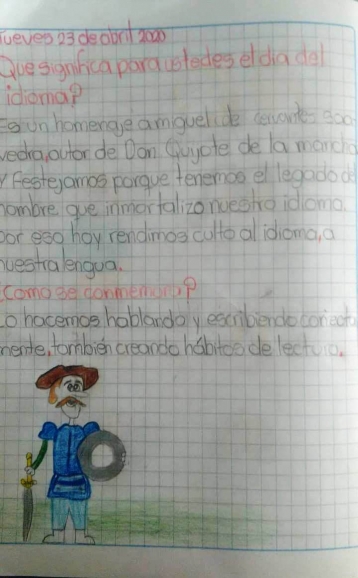 Jueves 23 de abril 2020
Que significa para ustedes el dia del
idioma?
Es un homenaje a miguel de cervantes saa-
vedra, autor de Don Quijote de la mancha
y Festejamos porque tenemos el legado del
hombre que inmortalizo nuestro idioma.
por eso hoy rendimos culto al idioma, a
nuestra lengua.
Como se conmemora?
Lo hacemos hablando y escribiendo correcta
mente, también creando hábitos de lectura.